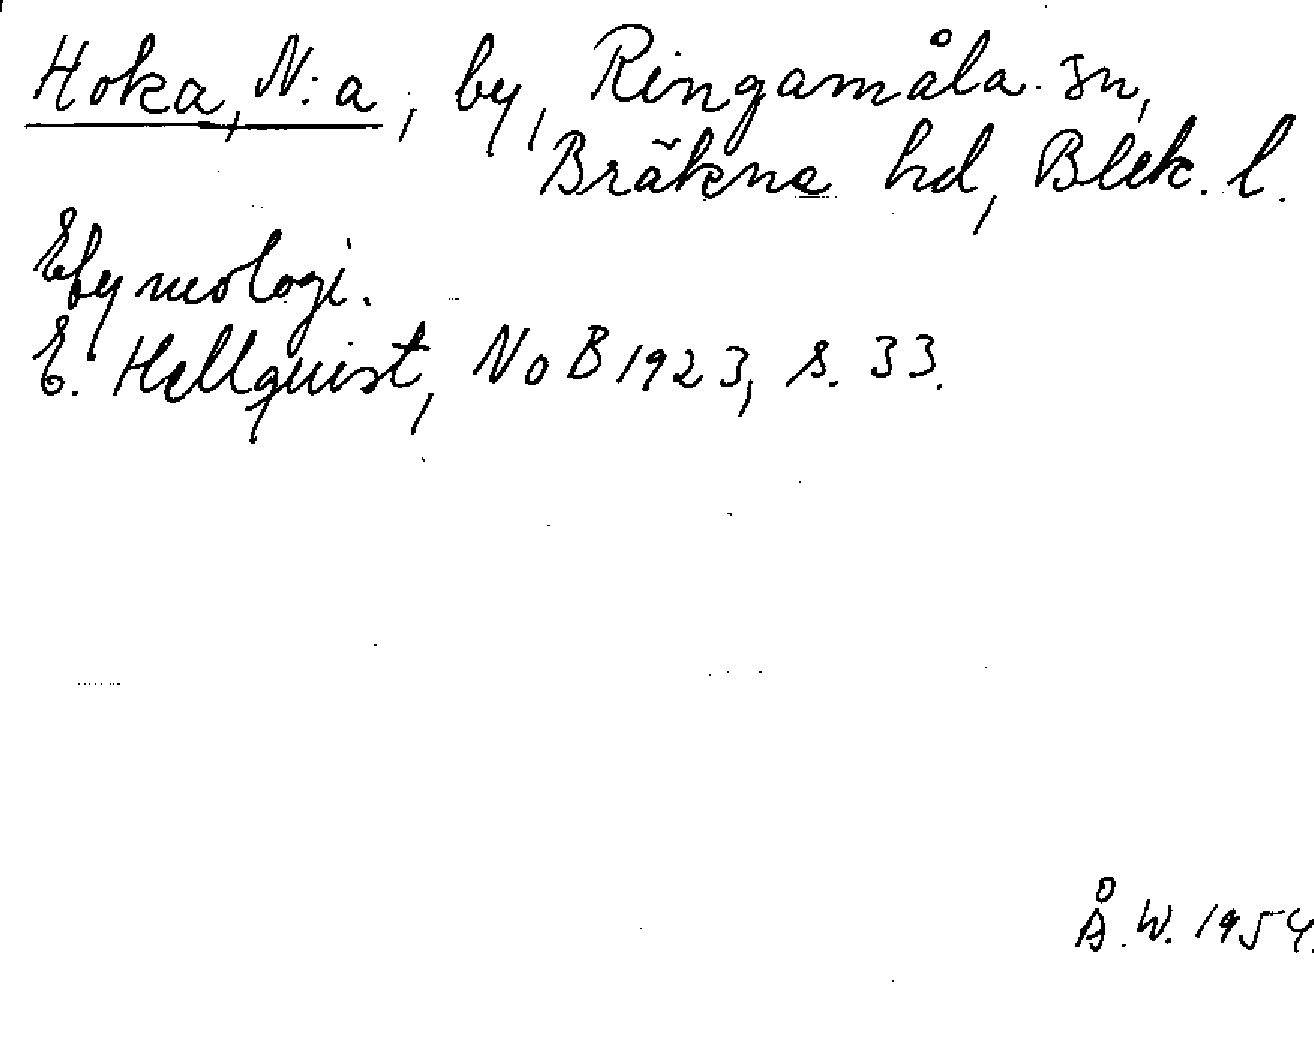 Hoka, N:a, by, Ringamåla sn,
Bräkne hd, Blek. l.
Etymologi.
E. Hellquist, NoB 1923, s. 33.
Å.W. 1954.